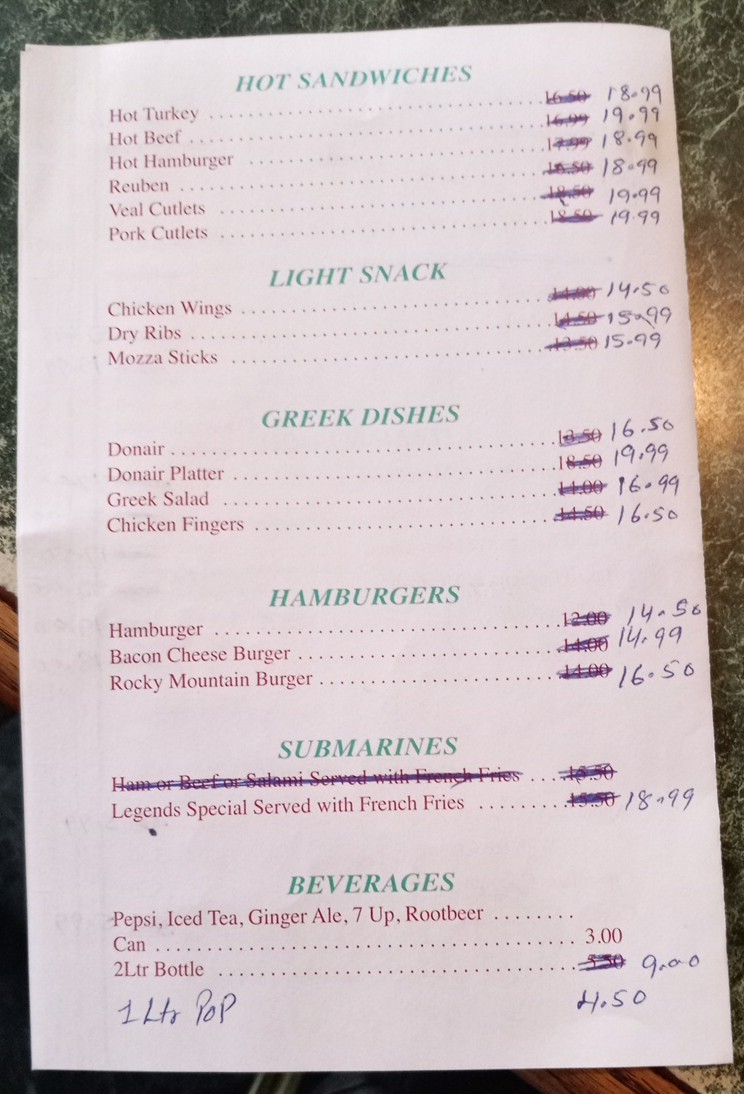 HOT SANDWICHES
Hot Turkey 16.50 18.99
Hot Beef 16.99 19.99
Hot Hamburger 17.99 18.99
Reuben 18.99
Veal Cutlets 18.50 19.99
Pork Cutlets 18.50 19.99
LIGHT SNACK
Chicken Wings 14.00 14.50
Dry Ribs 14.50 15.99
Mozza Sticks 13.50 15.99
GREEK DISHES
Donair 13.50 16.50
Donair Platter 18.50 19.99
Greek Salad 14.00 16.99
Chicken Fingers 14.50 16.50
HAMBURGERS
Hamburger 12.00 14.50
Bacon Cheese Burger 14.00 14.99
Rocky Mountain Burger 14.00 16.50
SUBMARINES
Ham or Beef or Salami Served with French Fries 15.50
Legends Special Served with French Fries 15.50 18.99
BEVERAGES
Pepsi, Iced Tea, Ginger Ale, 7 Up, Rootbeer
Can 3.00
2Ltr Bottle 9.00
1 Ltr PoP 4.50